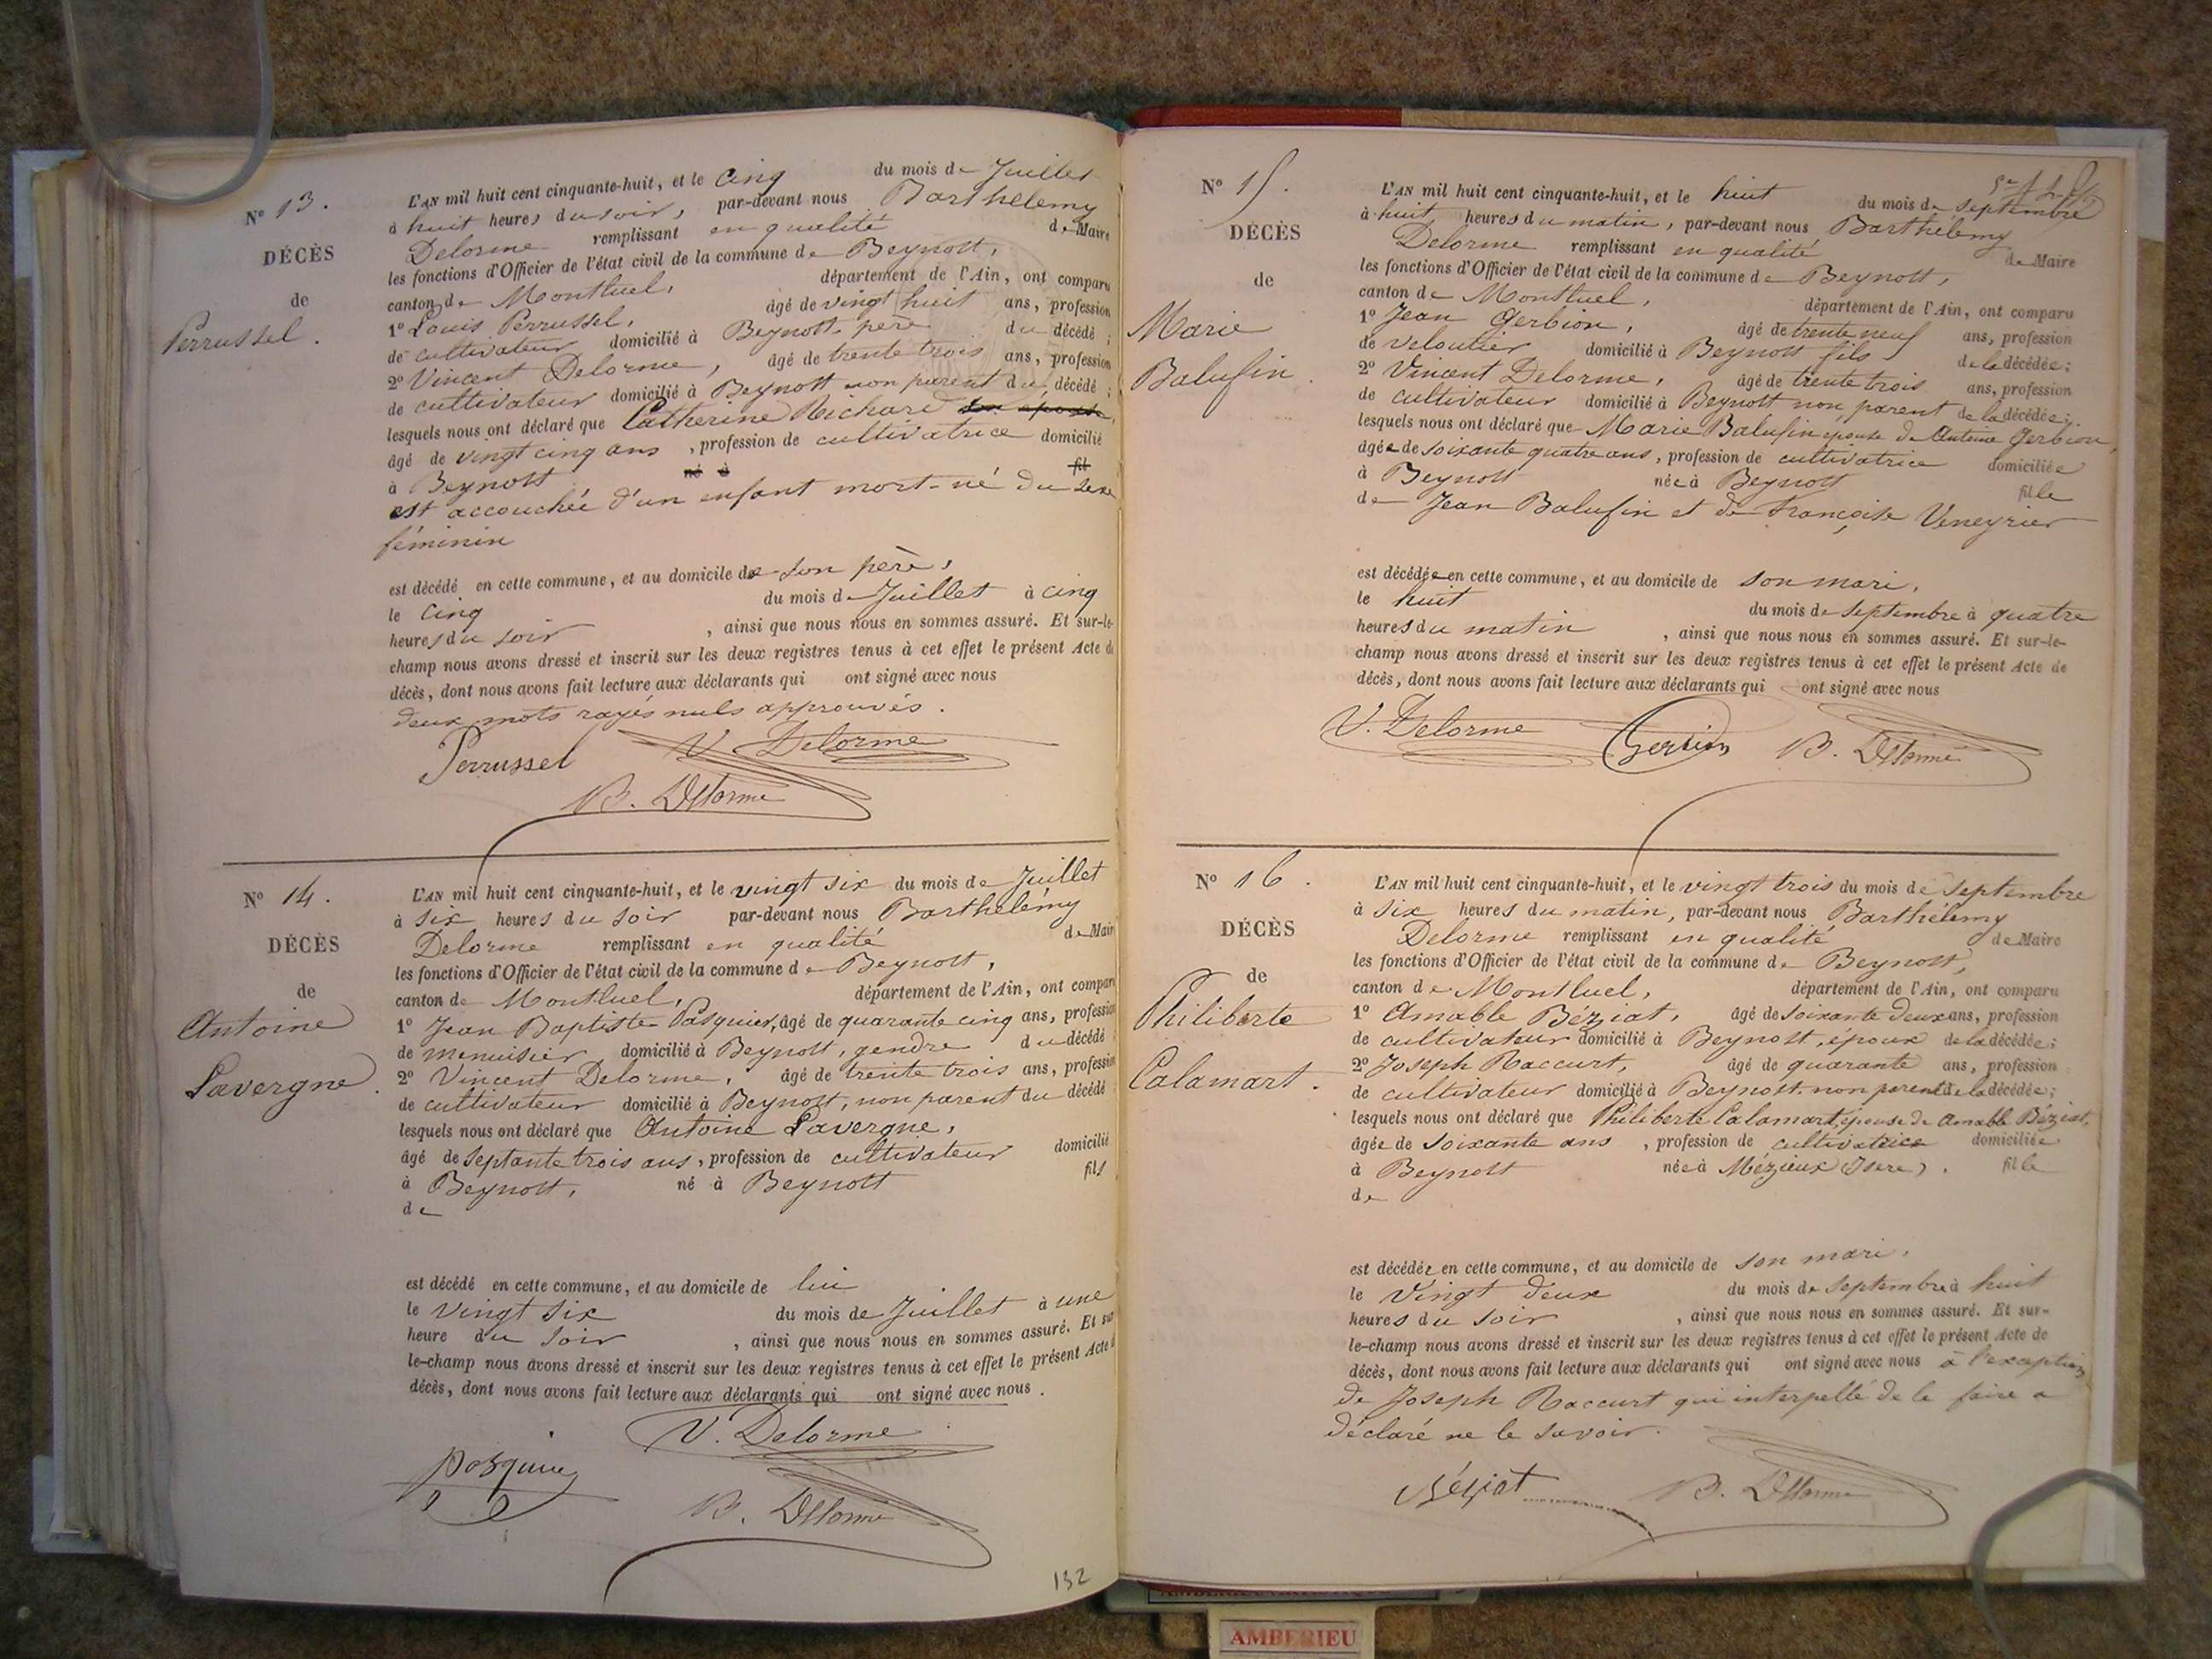 N° 13.
DÉCÈS
de
Perrussel.
L'AN mil huit cent cinquante-huit, et le cinq du mois de Juillet
à huit heures du soir, par-devant nous Barthélemy
Delorme remplissant en qualité de Maire
les fonctions d'Officier de l'état civil de la commune de Beynost,
canton de Montluel, département de l'Ain, ont comparu
1° Louis Perrussel, âgé de vingt huit ans, profession
de cultivateur domicilié à Beynost père du décédé;
2° Vincent Delorme, âgé de trente trois ans, profession
de cultivateur domicilié à Beynost non parent du décédé;
lesquels nous ont déclaré que Catherine Richard son épouse,
âgé de vingt cinq ans, profession de cultivatrice domicilié
à Beynost né à fil
est accouchée d'un enfant mort-né du sexe
féminin
est décédé en cette commune, et au domicile de son père,
le cinq du mois de Juillet à cinq
heures du soir, ainsi que nous nous en sommes assuré. Et sur-le-
champ nous avons dressé et inscrit sur les deux registres tenus à cet effet le présent Acte de
décès, dont nous avons fait lecture aux déclarants qui ont signé avec nous
deux mots rayés nuls approuvés.
Perrussel V. Delorme
B. Delorme
N° 14.
DÉCÈS
de
Antoine
Lavergne.
L'AN mil huit cent cinquante-huit, et le vingt six du mois de Juillet
à six heures du soir par-devant nous Barthélemy
Delorme remplissant en qualité de Maire
les fonctions d'Officier de l'état civil de la commune de Beynost,
canton de Montluel, département de l'Ain, ont comparu
1° Jean Baptiste Pasquier, âgé de quarante cinq ans, profession
de menuisier domicilié à Beynost, gendre du décédé
2° Vincent Delorme, âgé de trente trois ans, profession
de cultivateur domicilié à Beynost, non parent du décédé
lesquels nous ont déclaré que Antoine Lavergne,
âgé de septante trois ans, profession de cultivateur domicilié
à Beynost, né à Beynost fils
de
est décédé en cette commune, et au domicile de lui
le vingt six du mois de Juillet à une
heure du soir, ainsi que nous nous en sommes assuré. Et sur
le-champ nous avons dressé et inscrit sur les deux registres tenus à cet effet le présent Acte d
décès, dont nous avons fait lecture aux déclarants qui ont signé avec nous.
V. Delorme
Pasquier
B. Delorme
132
N° 15.
DÉCÈS
de
Marie
Balufin.
L'AN mil huit cent cinquante-huit, et le huit du mois de septembre
à huit heures du matin, par-devant nous Barthélemy
Delorme remplissant en qualité de Maire
les fonctions d'Officier de l'état civil de la commune de Beynost,
canton de Montluel, département de l'Ain, ont comparu
1° Jean Gerbion, âgé de trente neuf ans, profession
de veloutier domicilié à Beynost fils de la décédée;
2° Vincent Delorme, âgé de trente trois ans, profession
de cultivateur domicilié à Beynost non parent de la décédée;
lesquels nous ont déclaré que Marie Balufin épouse de Antoine Gerbion,
âgée de soixante quatre ans, profession de cultivatrice domiciliée
à Beynost née à Beynost fille
de Jean Balufin et de Françoise Veneyrier
est décédée en cette commune, et au domicile de son mari,
le huit du mois de septembre à quatre
heures du matin, ainsi que nous nous en sommes assuré. Et sur-le-
champ nous avons dressé et inscrit sur les deux registres tenus à cet effet le présent Acte de
décès, dont nous avons fait lecture aux déclarants qui ont signé avec nous
V. Delorme Gerbion B. Delorme
N° 16.
DÉCÈS
de
Philiberte
Calamart.
L'AN mil huit cent cinquante-huit, et le vingt trois du mois de septembre
à six heures du matin, par-devant nous Barthélemy
Delorme remplissant en qualité de Maire
les fonctions d'Officier de l'état civil de la commune de Beynost,
canton de Montluel, département de l'Ain, ont comparu
1° Amable Béziat, âgé de soixante deux ans, profession
de cultivateur domicilié à Beynost, époux de la décédée;
2° Joseph Raccurt, âgé de quarante ans, profession
de cultivateur domicilié à Beynost non parent de la décédée;
lesquels nous ont déclaré que Philiberte Calamart, épouse de Amable Béziat,
âgée de soixante ans, profession de cultivatrice domiciliée
à Beynost née à Mézieux (Isere), fille
de
est décédée en cette commune, et au domicile de son mari,
le vingt deux du mois de septembre à huit
heures du soir, ainsi que nous nous en sommes assuré. Et sur-
le-champ nous avons dressé et inscrit sur les deux registres tenus à cet effet le présent Acte de
décès, dont nous avons fait lecture aux déclarants qui ont signé avec nous à l'exception
de Joseph Raccurt qui interpellé de le faire a
déclaré ne le savoir.
Béziat B. Delorme
AMBERIEU